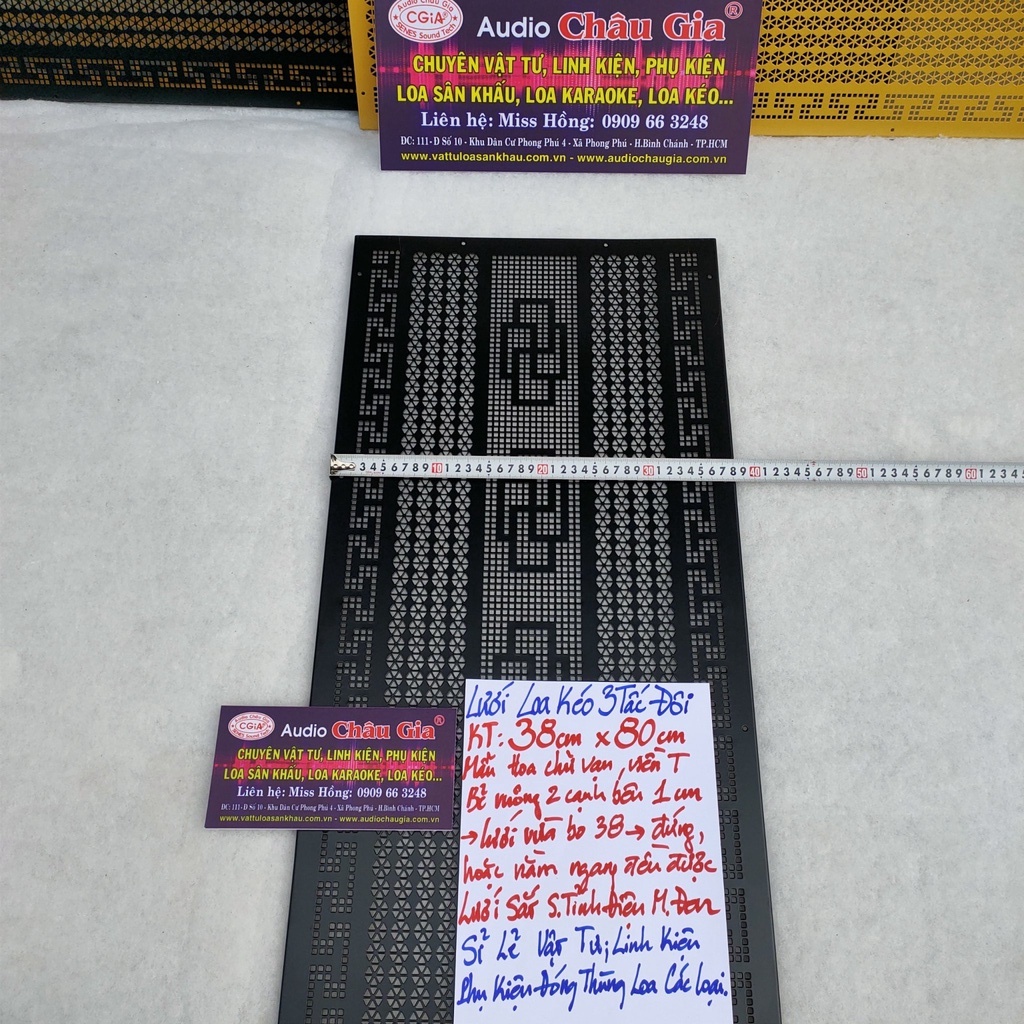 Audio Châu Gia
CGiA
SENES Sound Tech
Audio Châu Gia®
CHUYÊN VẬT TƯ, LINH KIỆN, PHỤ KIỆN
LOA SÂN KHẤU, LOA KARAOKE, LOA KÉO...
Liên hệ: Miss Hồng: 0909 66 3248
ĐC: 111-D Số 10 - Khu Dân Cư Phong Phú 4 - Xã Phong Phú - H.Bình Chánh - TP.HCM
www.vattuloasankhau.com.vn - www.audiochaugia.com.vn
3 4 5 6 7 8 9 10 1 2 3 4 5 6 7 8 9 20 1 2 3 4 5 6 7 8 9 30 1 2 3 4 5 6 7 8 9 40 1 2 3 4 5 6 7 8 9 50 1 2 3 4 5 6 7 8 9 60 1 2 3 4
Lưới Loa Kéo 3 Tấc Đôi
KT: 38cm x 80cm
Mẫu Hoa chữ vạn, viền T
Bẻ vuông 2 cạnh bên 1 cm
→ lưới vừa bo 38 → đứng,
hoặc nằm ngang đều được
Lưới Sắt S.Tĩnh Điện M.Đen
Sỉ Lẻ Vật Tư; Linh Kiện
Phụ Kiện Đóng Thùng Loa Các Loại.
Audio Châu Gia
CGiA
SENES Sound Tech
Audio Châu Gia®
CHUYÊN VẬT TƯ, LINH KIỆN, PHỤ KIỆN
LOA SÂN KHẤU, LOA KARAOKE, LOA KÉO...
Liên hệ: Miss Hồng: 0909 66 3248
ĐC: 111-D Số 10 - Khu Dân Cư Phong Phú 4 - Xã Phong Phú - H.Bình Chánh - TP.HCM
www.vattuloasankhau.com.vn - www.audiochaugia.com.vn